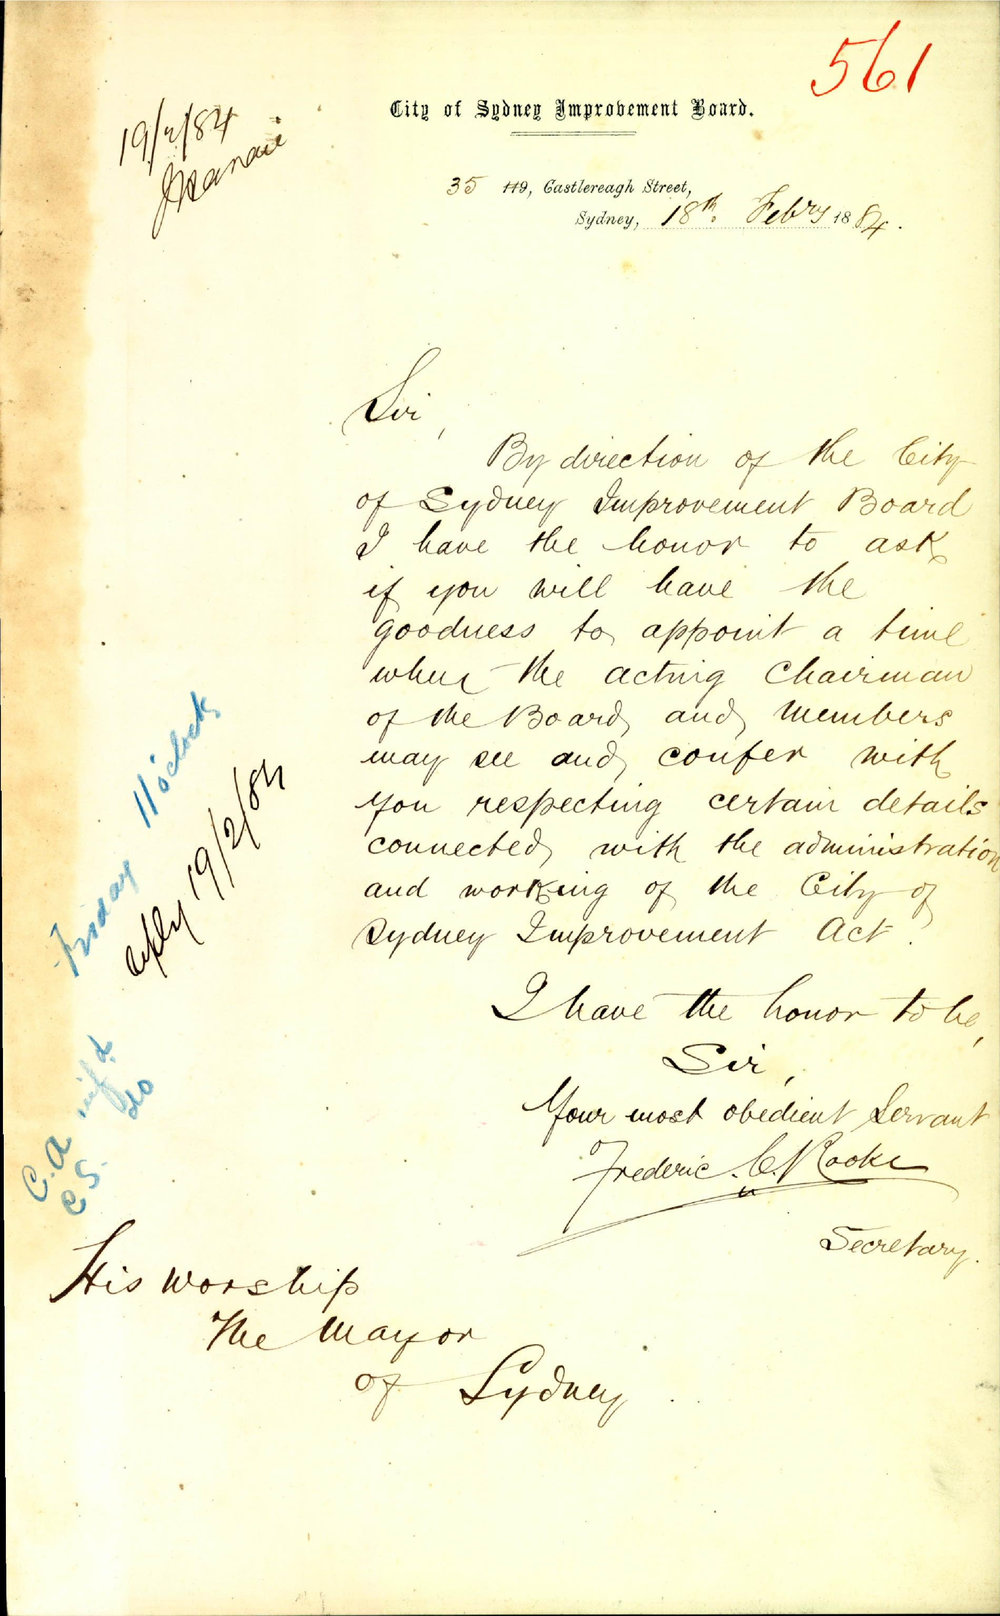 561
City of Sydney Improvement Board.
19/2/84
35 119, Castlereagh Street,
Sydney, 18th Febry 1884.
Sir,
By direction of the City
of Sydney Improvement Board
I have the honor to ask
if you will have the
goodness to appoint a time
when the acting Chairman
of the Board and Members
may see and confer with
you respecting certain details
connected with the administration
and working of the City of
Sydney Improvement Act.
I have the honor to be,
Sir,
Your most obedient Servant
Frederic C. Rooke
Secretary.
His Worship
The Mayor
of Sydney.
Friday 11 o'clock
19/2/84
C.A. infd
C.S. do